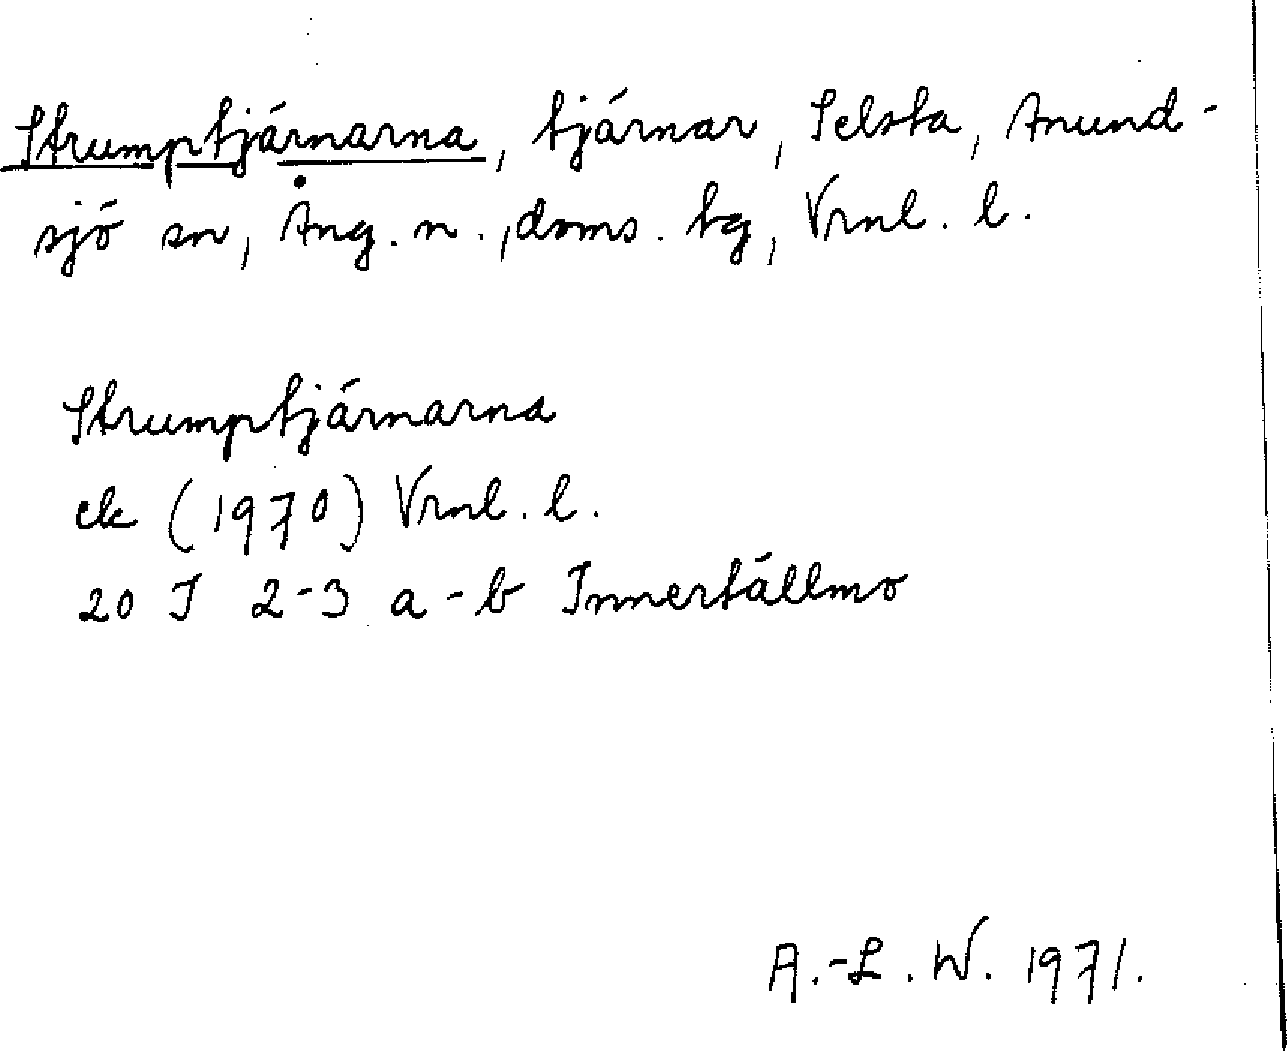 Strumptjärnarna, tjärnar, Selsta, Anund-
sjö sn, Ång. n., doms. tg, Vrml. l.
Strumptjärnarna
ek (1970) Vrml. l.
20 I 2-3 a-b Innertällmo
A.-L. W. 1971.